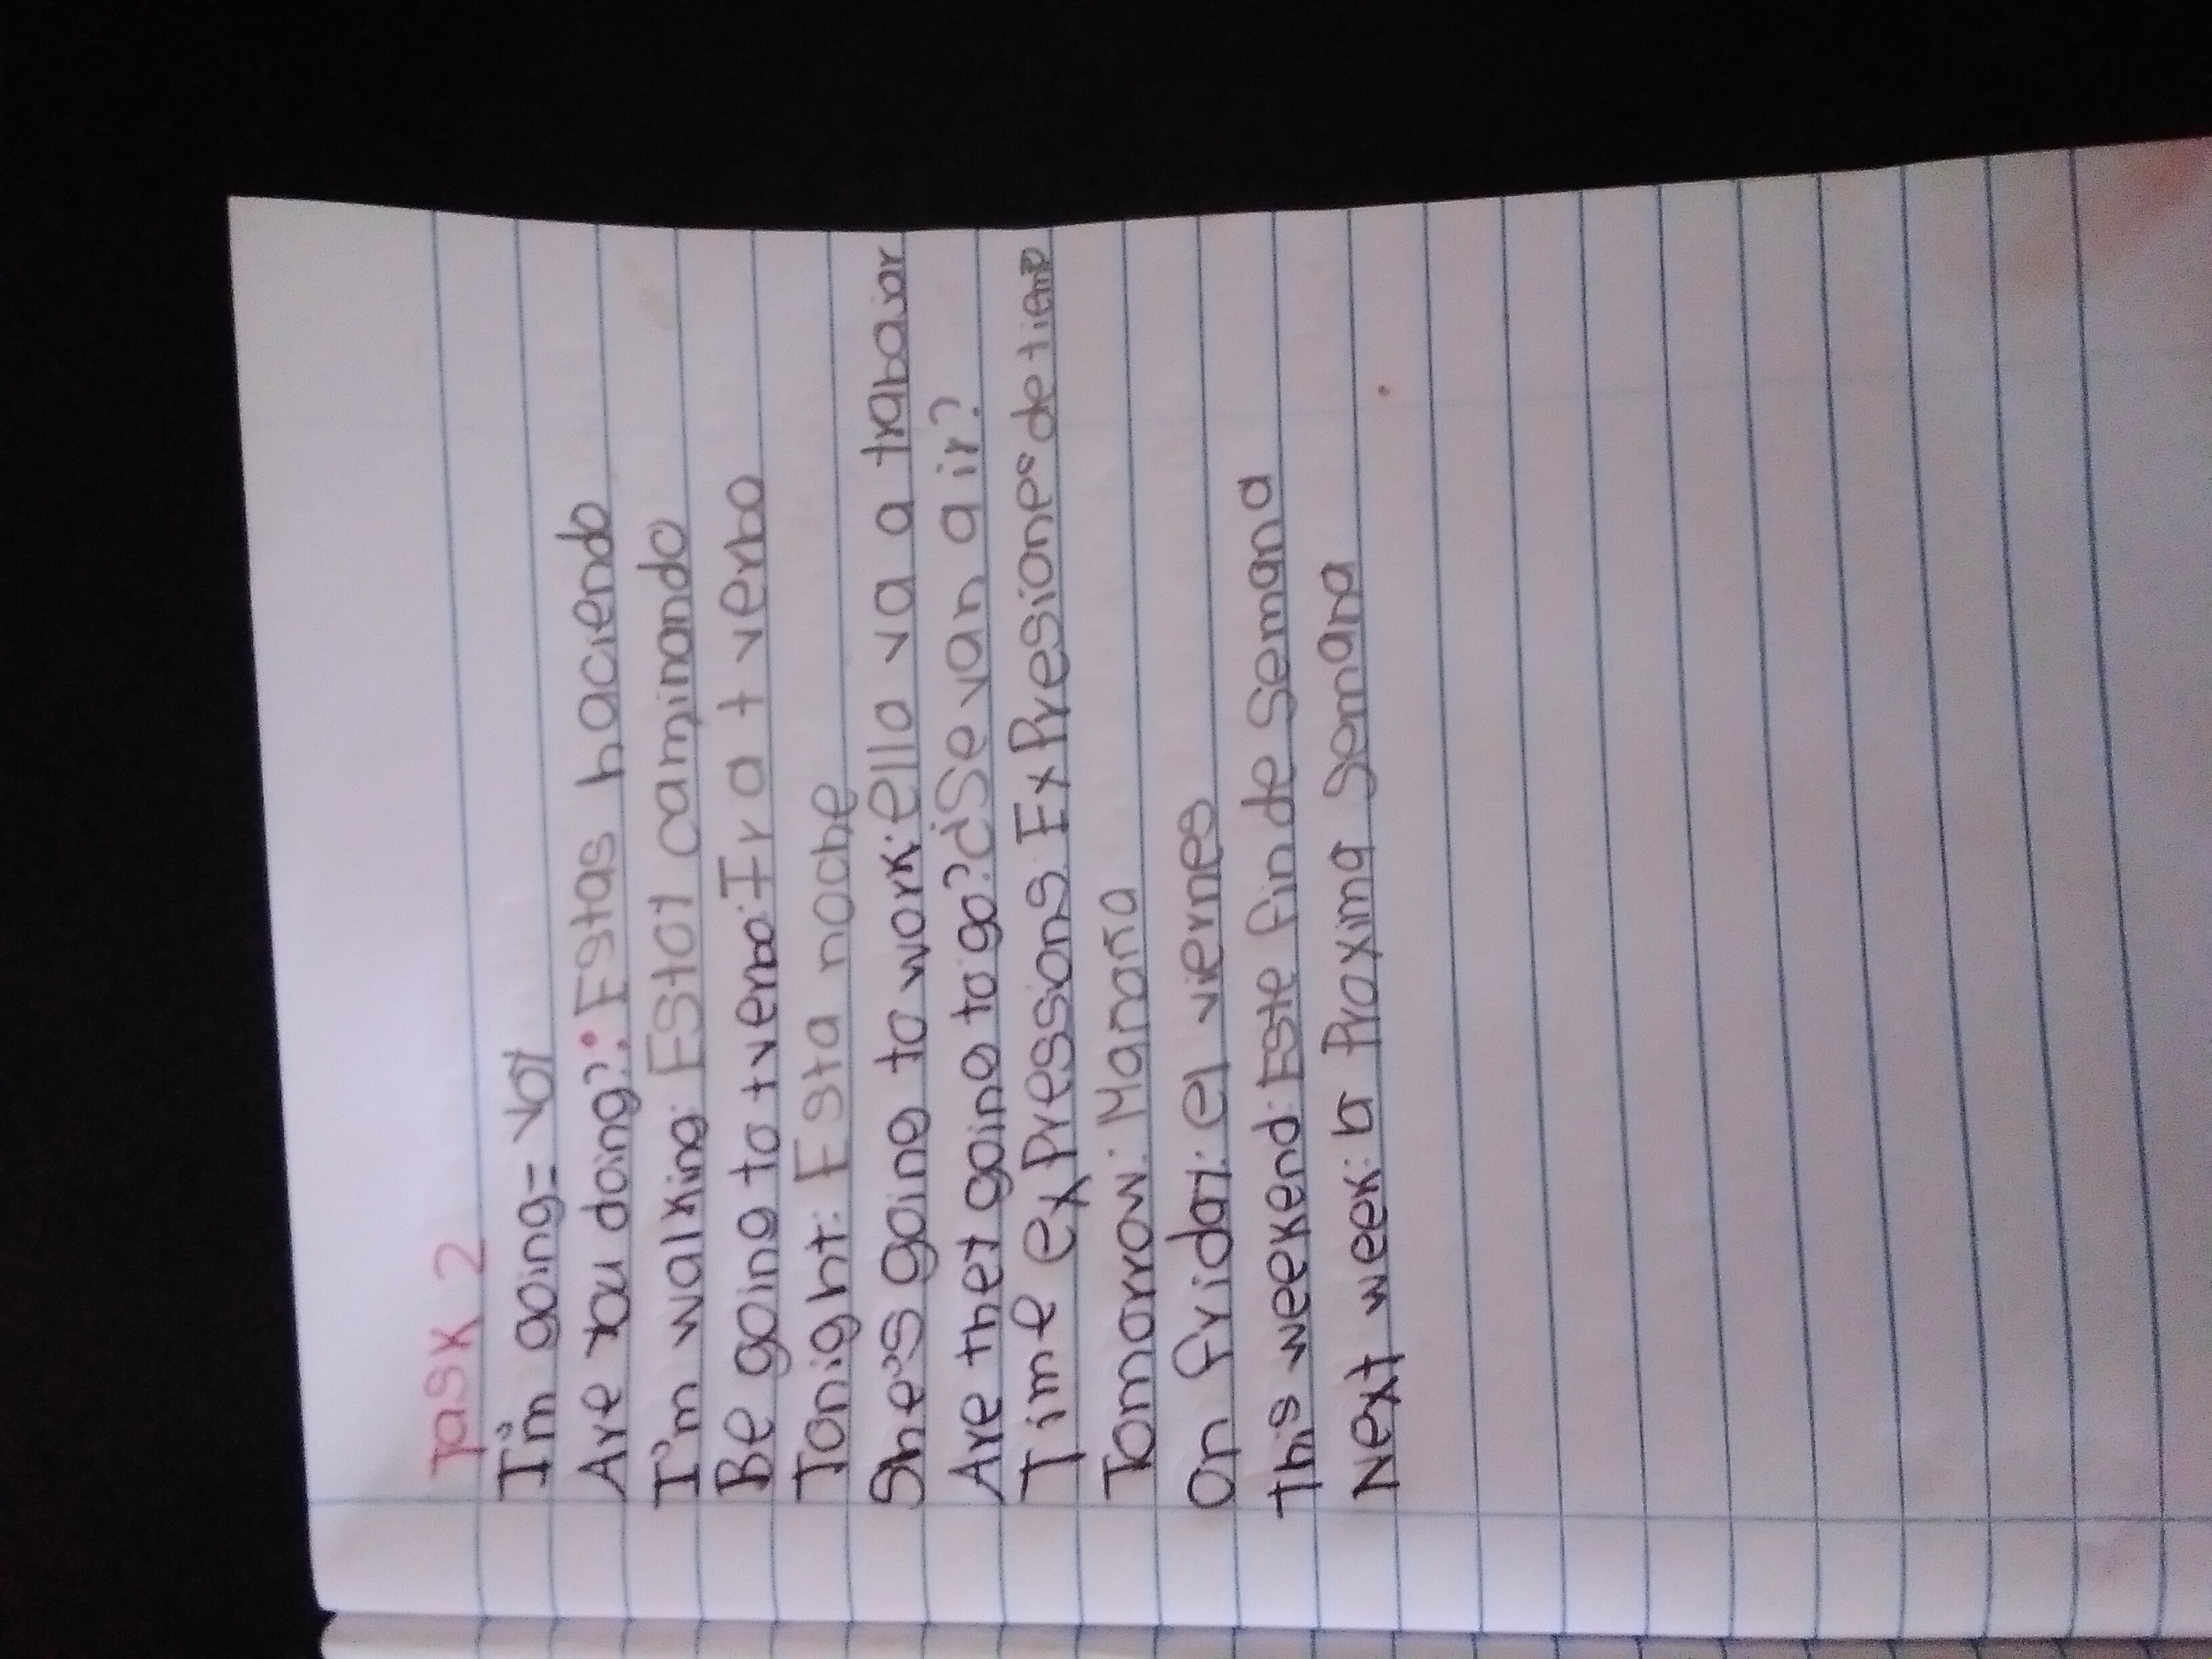 Task 2
I'm going = voy
Are you doing?: Estas haciendo
I'm walking: Estoy caminando
Be going to + verbo: Ir a + verbo
Tonight: Esta noche
She's going to work: ella va a trabajar
Are they going to go? ¿Se van a ir?
Time expressions: Expresiones de tiemp
Tomorrow: Manaña
On friday: el viernes
This weekend: Este fin de semana
Next week: la Proxima semana